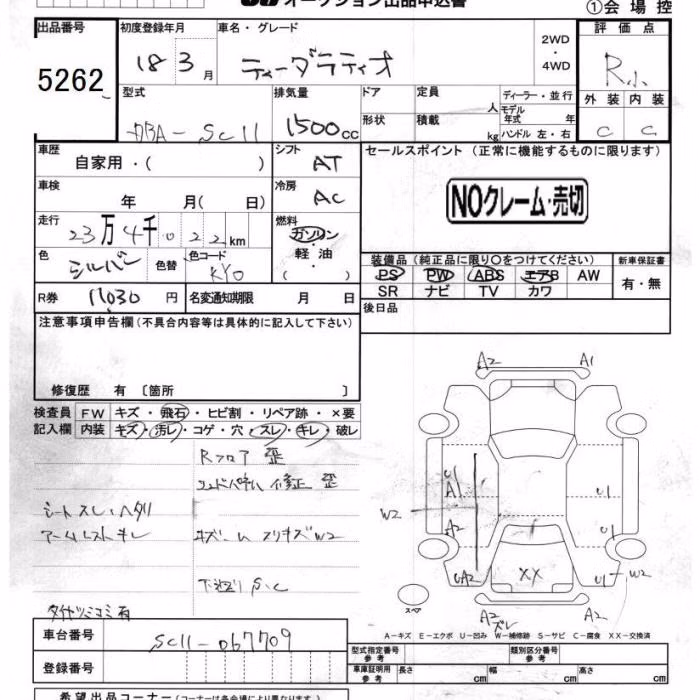 オークション出品申込書
①会場控
出品番号
5262
初度登録年月
18 3月
車名・グレード
ティーダラティオ
2WD・4WD
評価点
R小
外装 内装
C C
型式
DBA-SC11
排気量
1500cc
ドア
形状
定員 人
積載 kg
ディーラー・並行
モデル年式 年
ハンドル 左・右
車歴
自家用・( )
シフト
AT
セールスポイント(正常に機能するものに限ります)
NOクレーム・売切
車検
年 月( 日)
冷房
AC
走行
23万4千022km
燃料
ガソリン・軽油・( )
色
シルバー
色替
色コード
KY0
装備品(純正品に限り○をつけてください)
PS PW ABS エアB AW
SR ナビ TV カワ
新車保証書
有・無
R券 11030円
名変通知期限 月 日
後日品
注意事項申告欄(不具合内容等は具体的に記入して下さい)
修復歴 有〔箇所 〕
検査員記入欄
FW キズ・飛石・ヒビ割・リペア跡・×要
内装 キズ・汚レ・コゲ・穴・スレ・キレ・破レ
Rフロア 歪
エンドパネル 修正 歪
シート スレ・ヘタリ
アームレスト キレ
下廻り S.C
タイヤツミコミ有
A2 A1
U1
A1
W2
A2
UA2
U1
U1
W2
XX
スペア
A2 ズレ A2
A-キズ E-エクボ U-凹み W-補修跡 S-サビ C-腐食 XX-交換済
車台番号
SC11-067709
登録番号
型式指定番号 参考
類別区分番号 参考
車庫証明用 参考
長さ cm 幅 cm 高さ cm
希望出品コーナー(コーナーは各会場により異なります。)